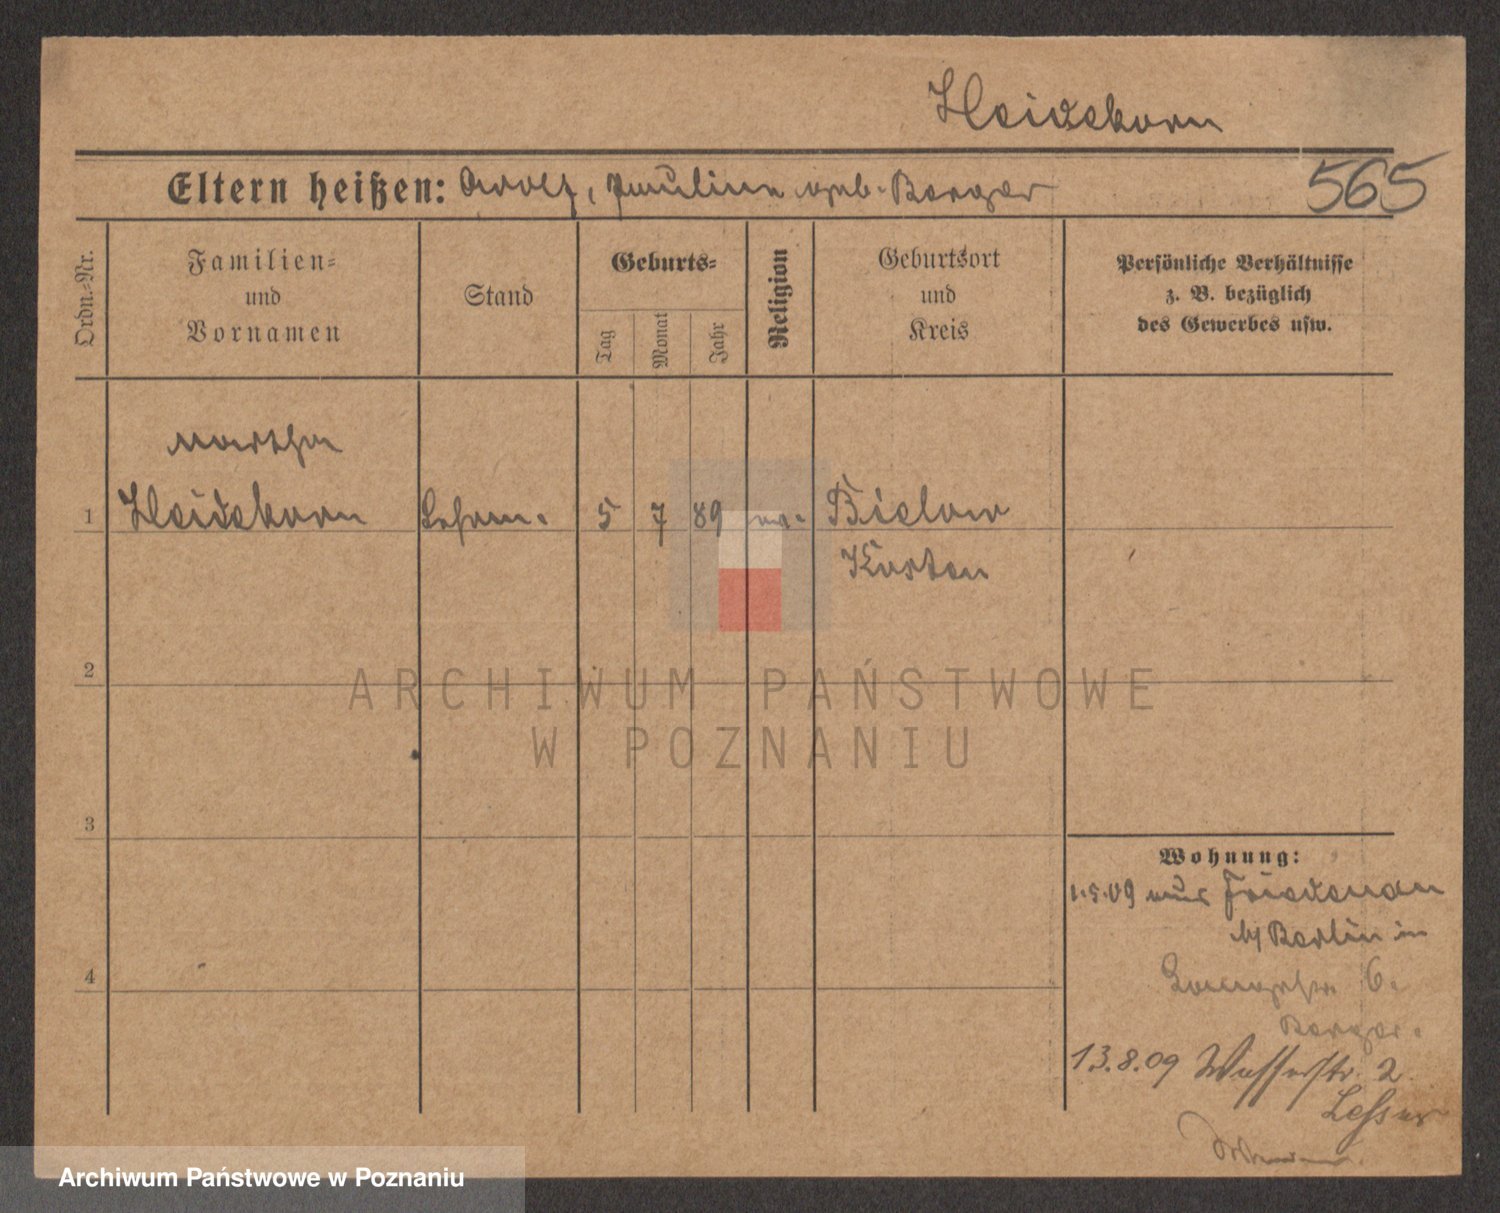 Heideborn
Eltern heißen: Adolf, Pauline geb. Berger
565
Ordn.-Nr.
Familien-
und
Vornamen
Stand
Geburts-
Tag
Monat
Jahr
Religion
Geburtsort
und
Kreis
Persönliche Verhältnisse
z. B. bezüglich
des Gewerbes usw.
Martha
1 Heideborn 5 7 89 ev. Bielow
2
3
4
Wohnung:
1.5.09 aus Friedenau
b/ Berlin in
6.
Berger.
13.8.09 Wasserstr. 2
Lesser
ARCHIWUM PAŃSTWOWE
W POZNANIU
Archiwum Państwowe w Poznaniu